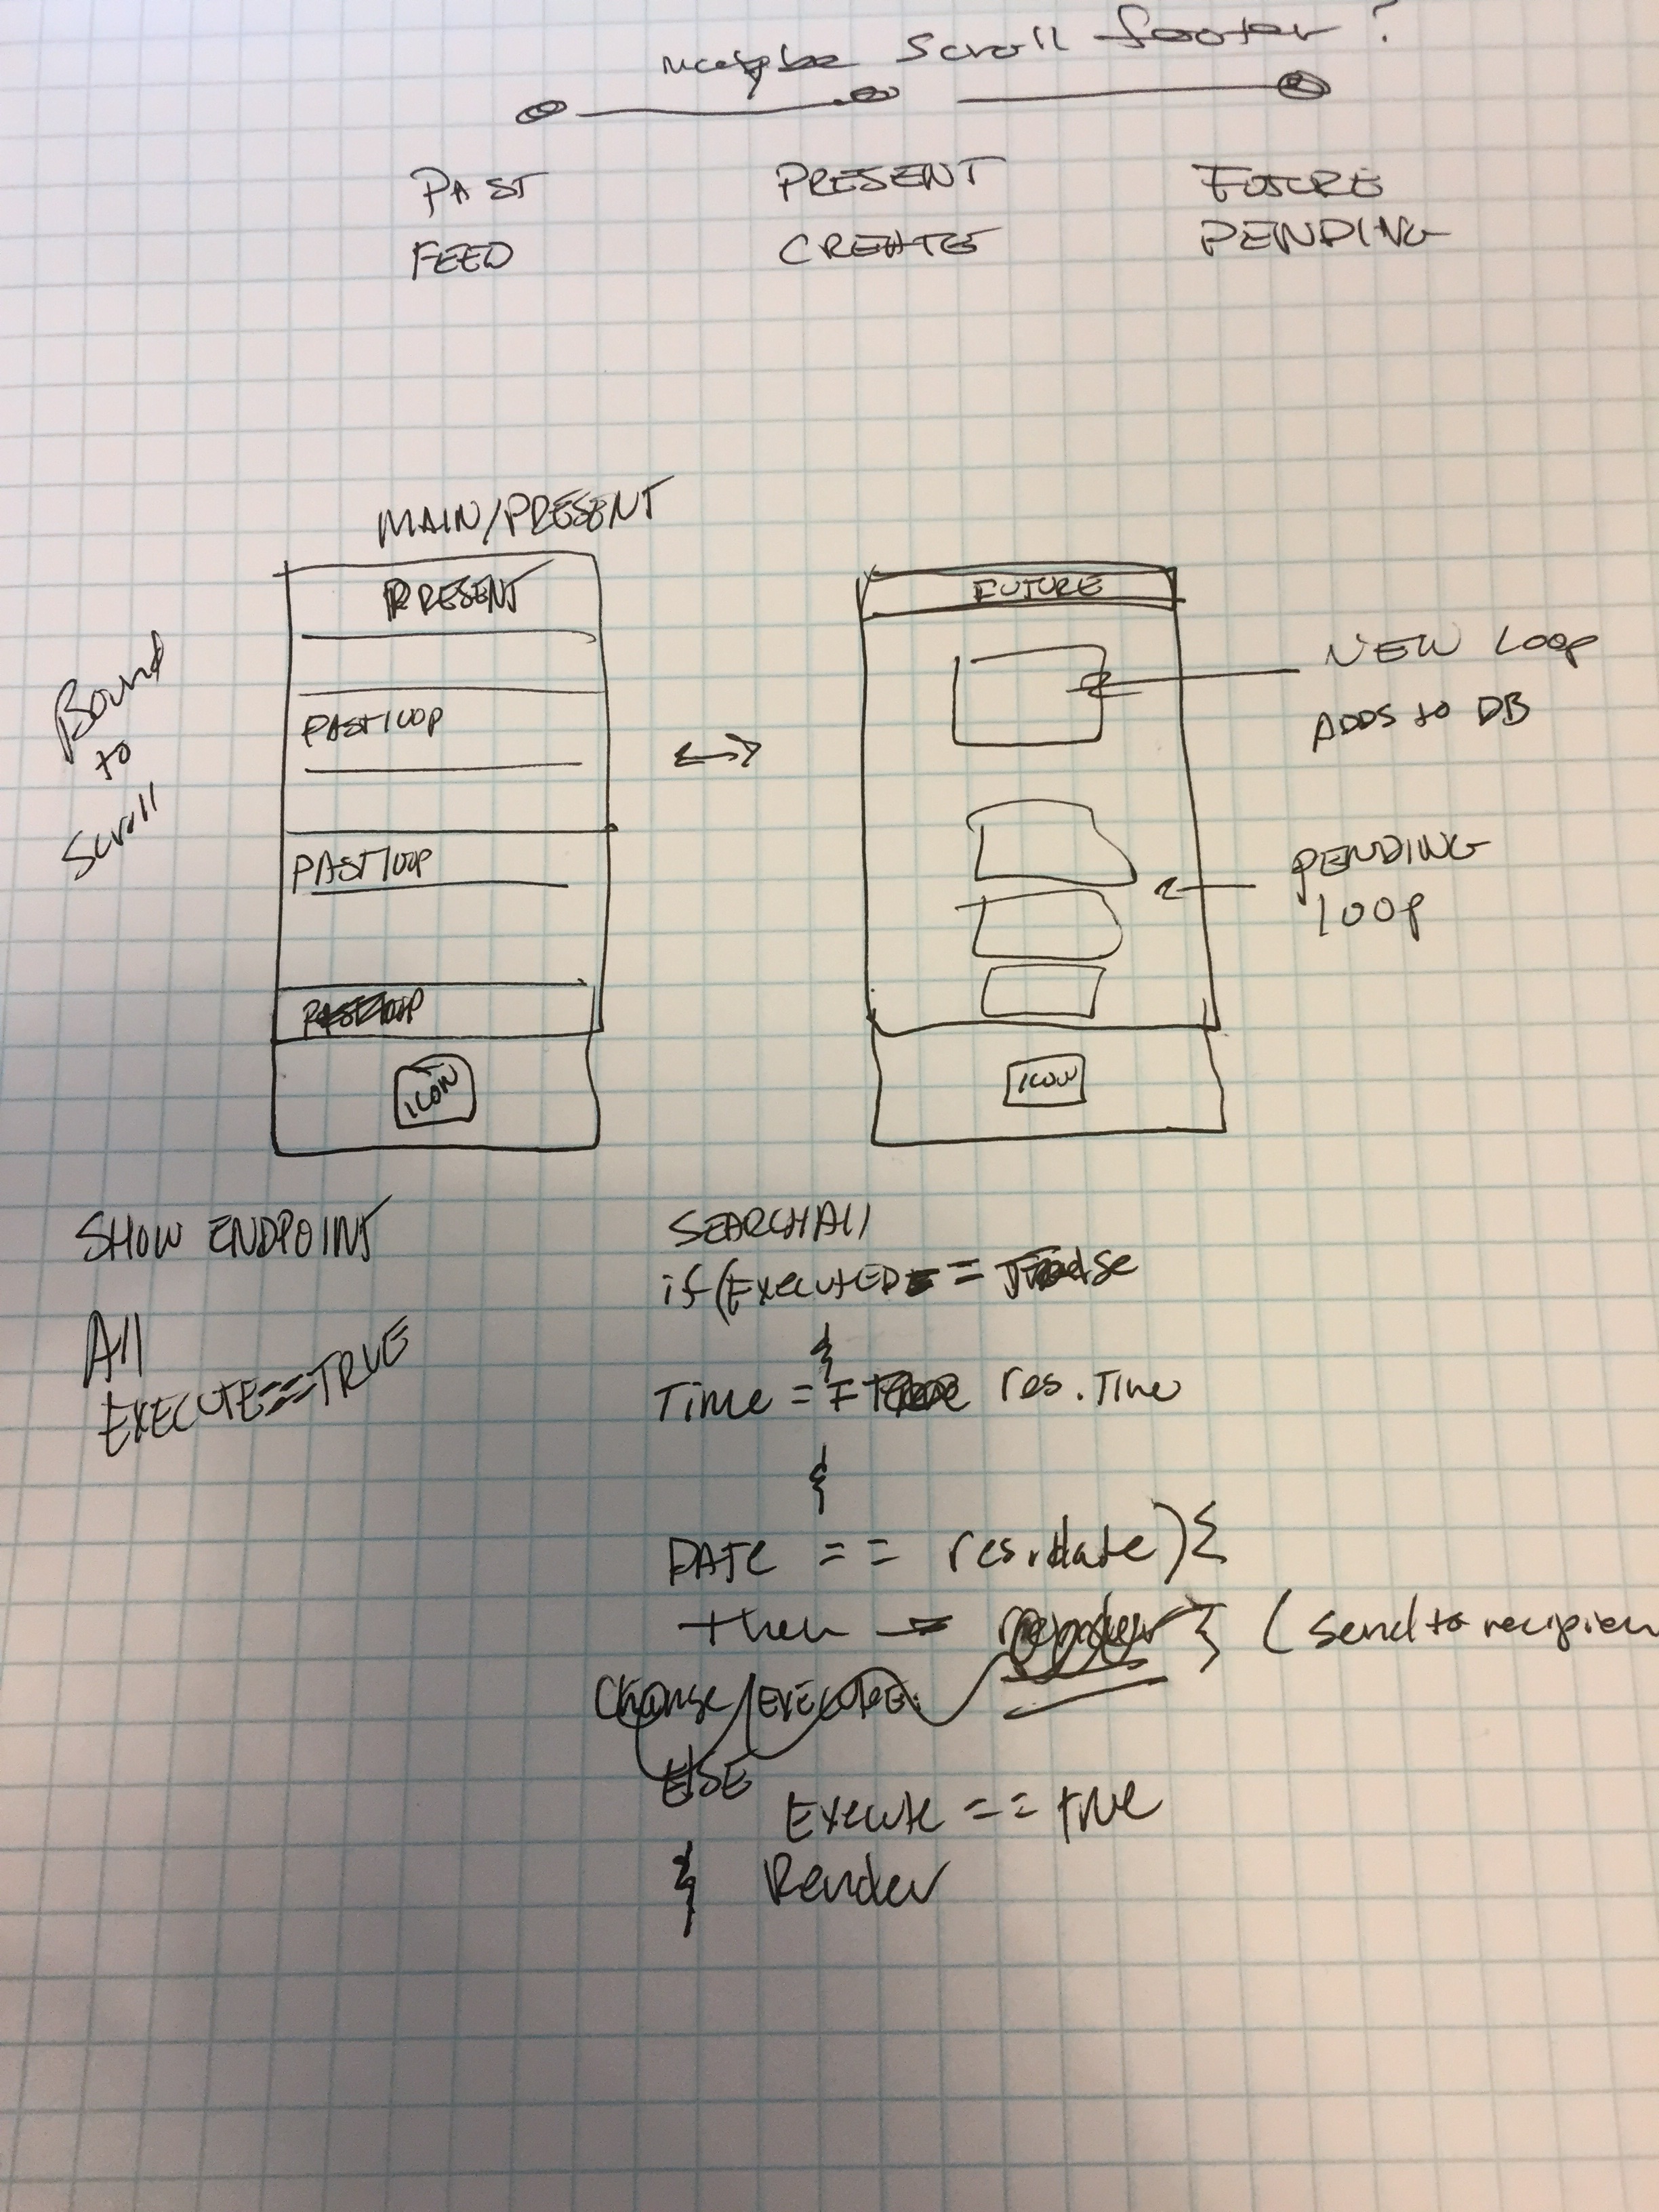 maybe scroll footer?
PAST PRESENT FUTURE
FEED CREATE PENDING
MAIN/PRESENT
PRESENT
PAST loop
PAST loop
PAST loop
ICON
Bound
to
Scroll
FUTURE
NEW LOOP
ADDS to DB
PENDING
loop
ICON
SHOW ENDPOINT
All
EXECUTE==TRUE
SEARCH All
if(EXECUTED ==
&
Time = res.Time
&
DATE == res.date){
then = } (send to recipien
Change EXECUTE
ELSE
Execute == true
& Render